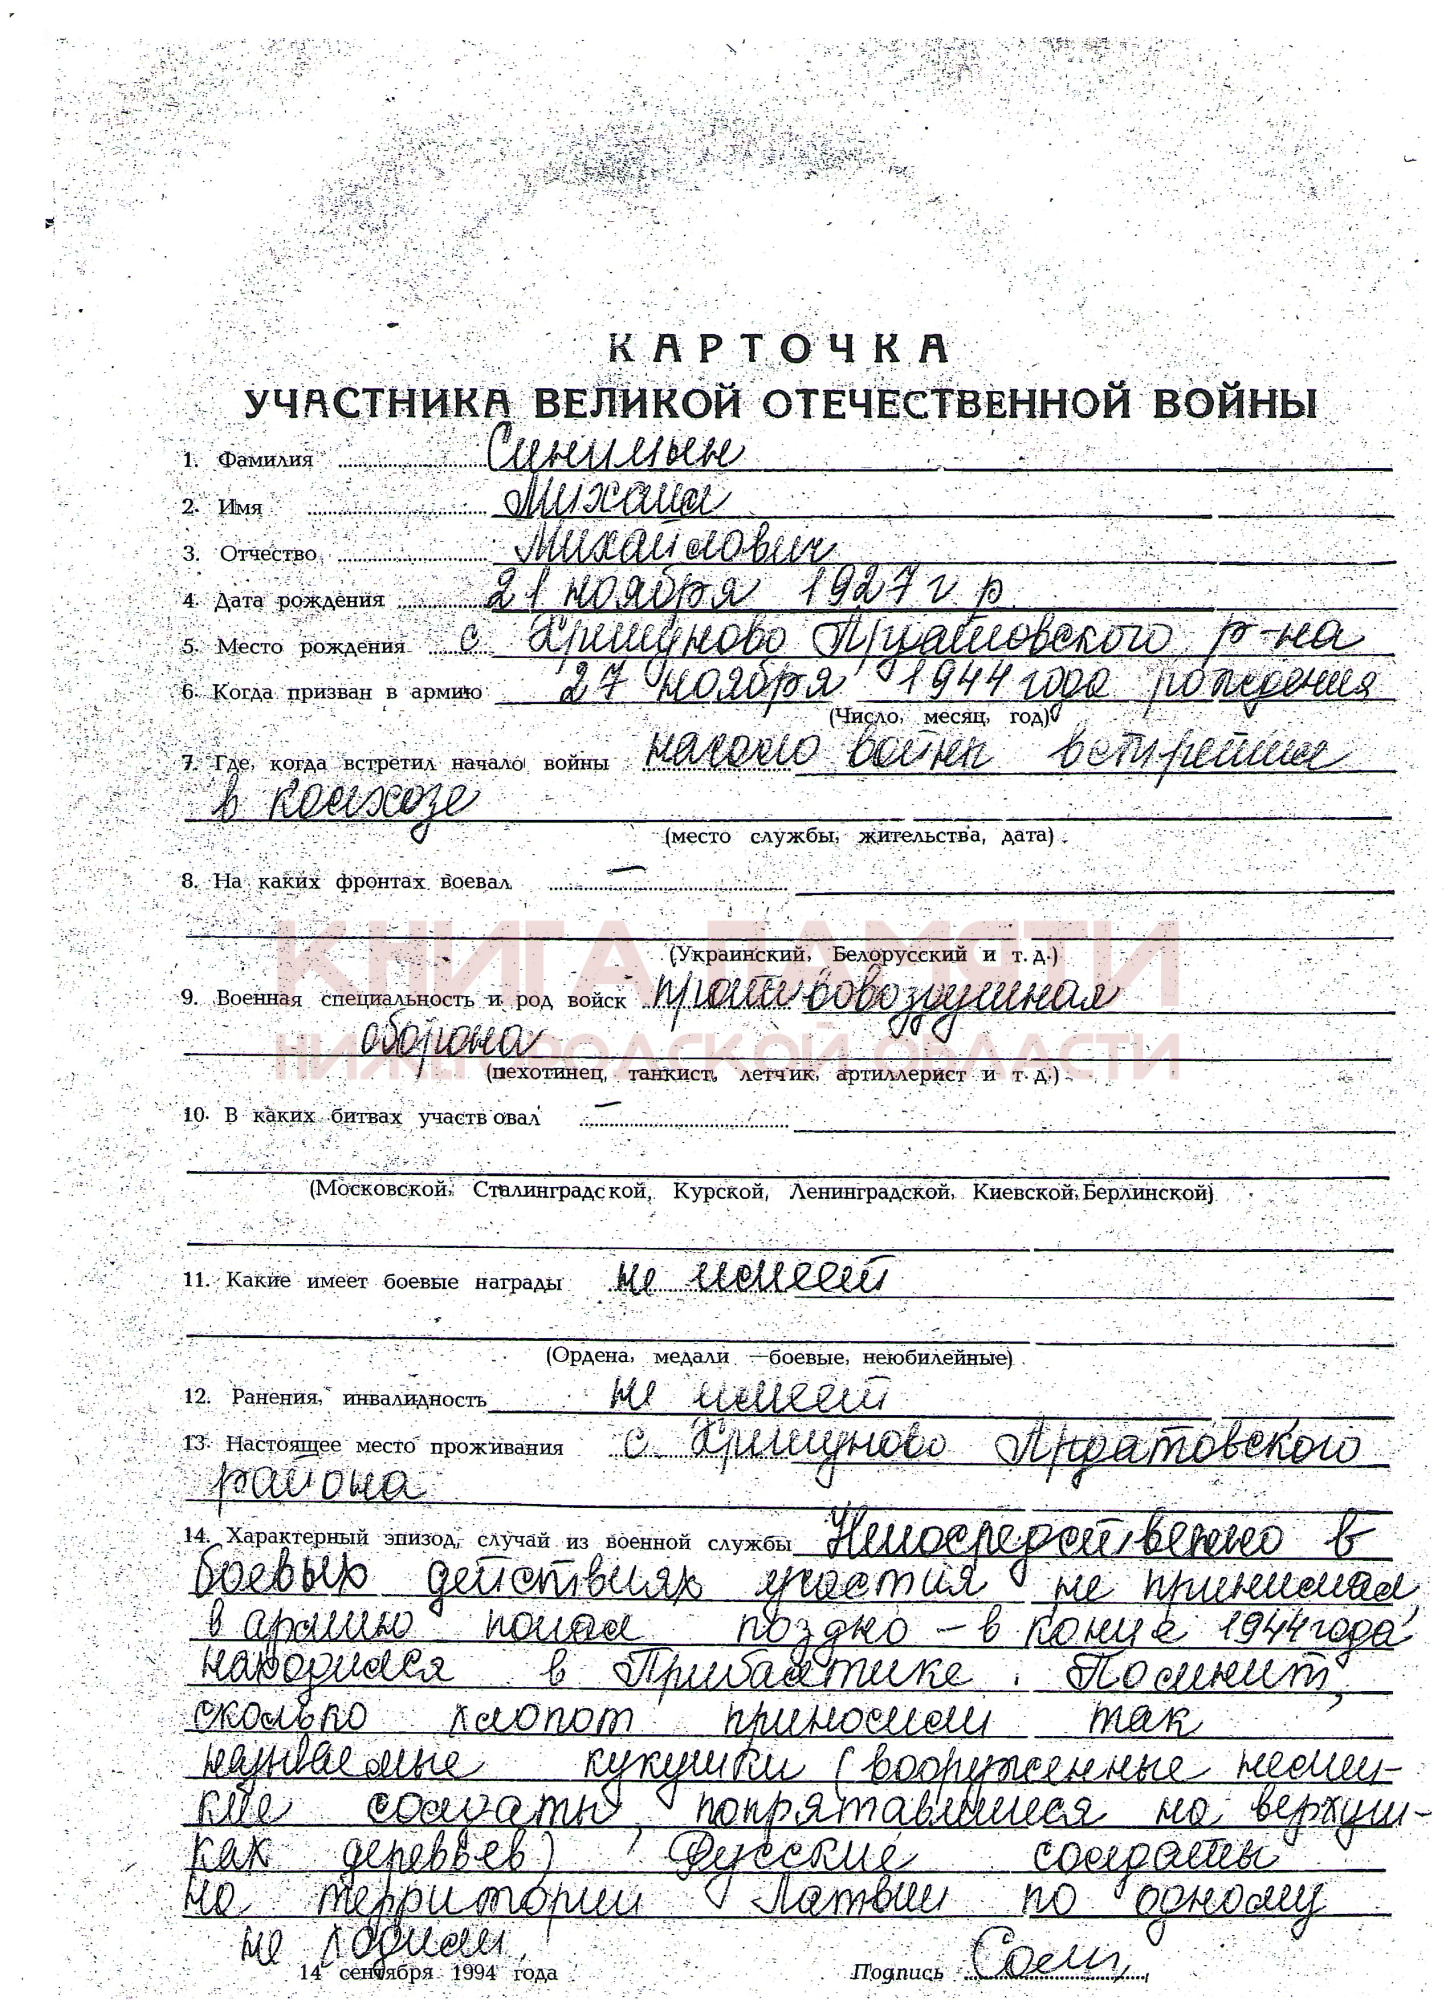 КАРТОЧКА
УЧАСТНИКА ВЕЛИКОЙ ОТЕЧЕСТВЕННОЙ ВОЙНЫ
1. Фамилия
2. Имя Михаил
3. Отчество Михайлович
4. Дата рождения 21 ноября 1927 г р
5. Место рождения с Хрипуново Ардатовского р-на
6. Когда призван в армию 27 ноября 1944 года рождения
(Число, месяц, год)
7. Где, когда встретил начало войны начало войны встретил
в колхозе
(место службы, жительства, дата).
8. На каких фронтах воевал —
КНИГА ПАМЯТИ
(Украинский, Белорусский и т. д.)
9. Военная специальность и род войск противовоздушная
оборона
НИЖЕГОРОДСКОЙ ОБЛАСТИ
(пехотинец, танкист, летчик, артиллерист и т. д.)
10. В каких битвах участвовал —
(Московской, Сталинградской, Курской, Ленинградской, Киевской, Берлинской)
11. Какие имеет боевые награды не имеет
(Ордена, медали —боевые, неюбилейные)
12. Ранения, инвалидность не имеет
13. Настоящее место проживания с. Хрипуново Ардатовского
района
14. Характерный эпизод, случай из военной службы Непосредственно в
боевых действиях участия не принимал,
в армию попал поздно – в конце 1944 года,
находился в Прибалтике. Помнит,
сколько хлопот приносили так
называемые кукушки (вооруженные немец-
кие солдаты, попрятавшиеся на верхуш-
ках деревьев) Русские солдаты
на территории Латвии по одному
не ходили.
14 сентября 1994 года Подпись